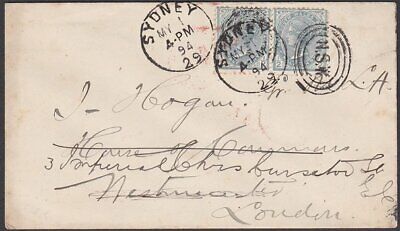 SYDNEY
MY 1
4-PM
94
29
SYDNEY
MY 1
4-PM
94
29
N.S.W
J- Hogan
House of Commons
3 Imperial
Westminster
London